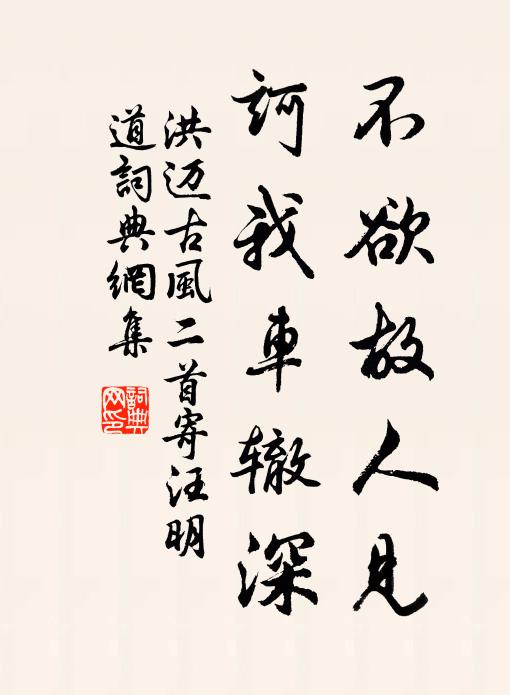 不欲故人見
訶我車辙深
洪迈古風二首寄汪明
道詞典網集
詞典
网印